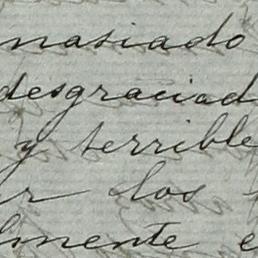 masiado
desgraciad
y terrible
r los
lmente e